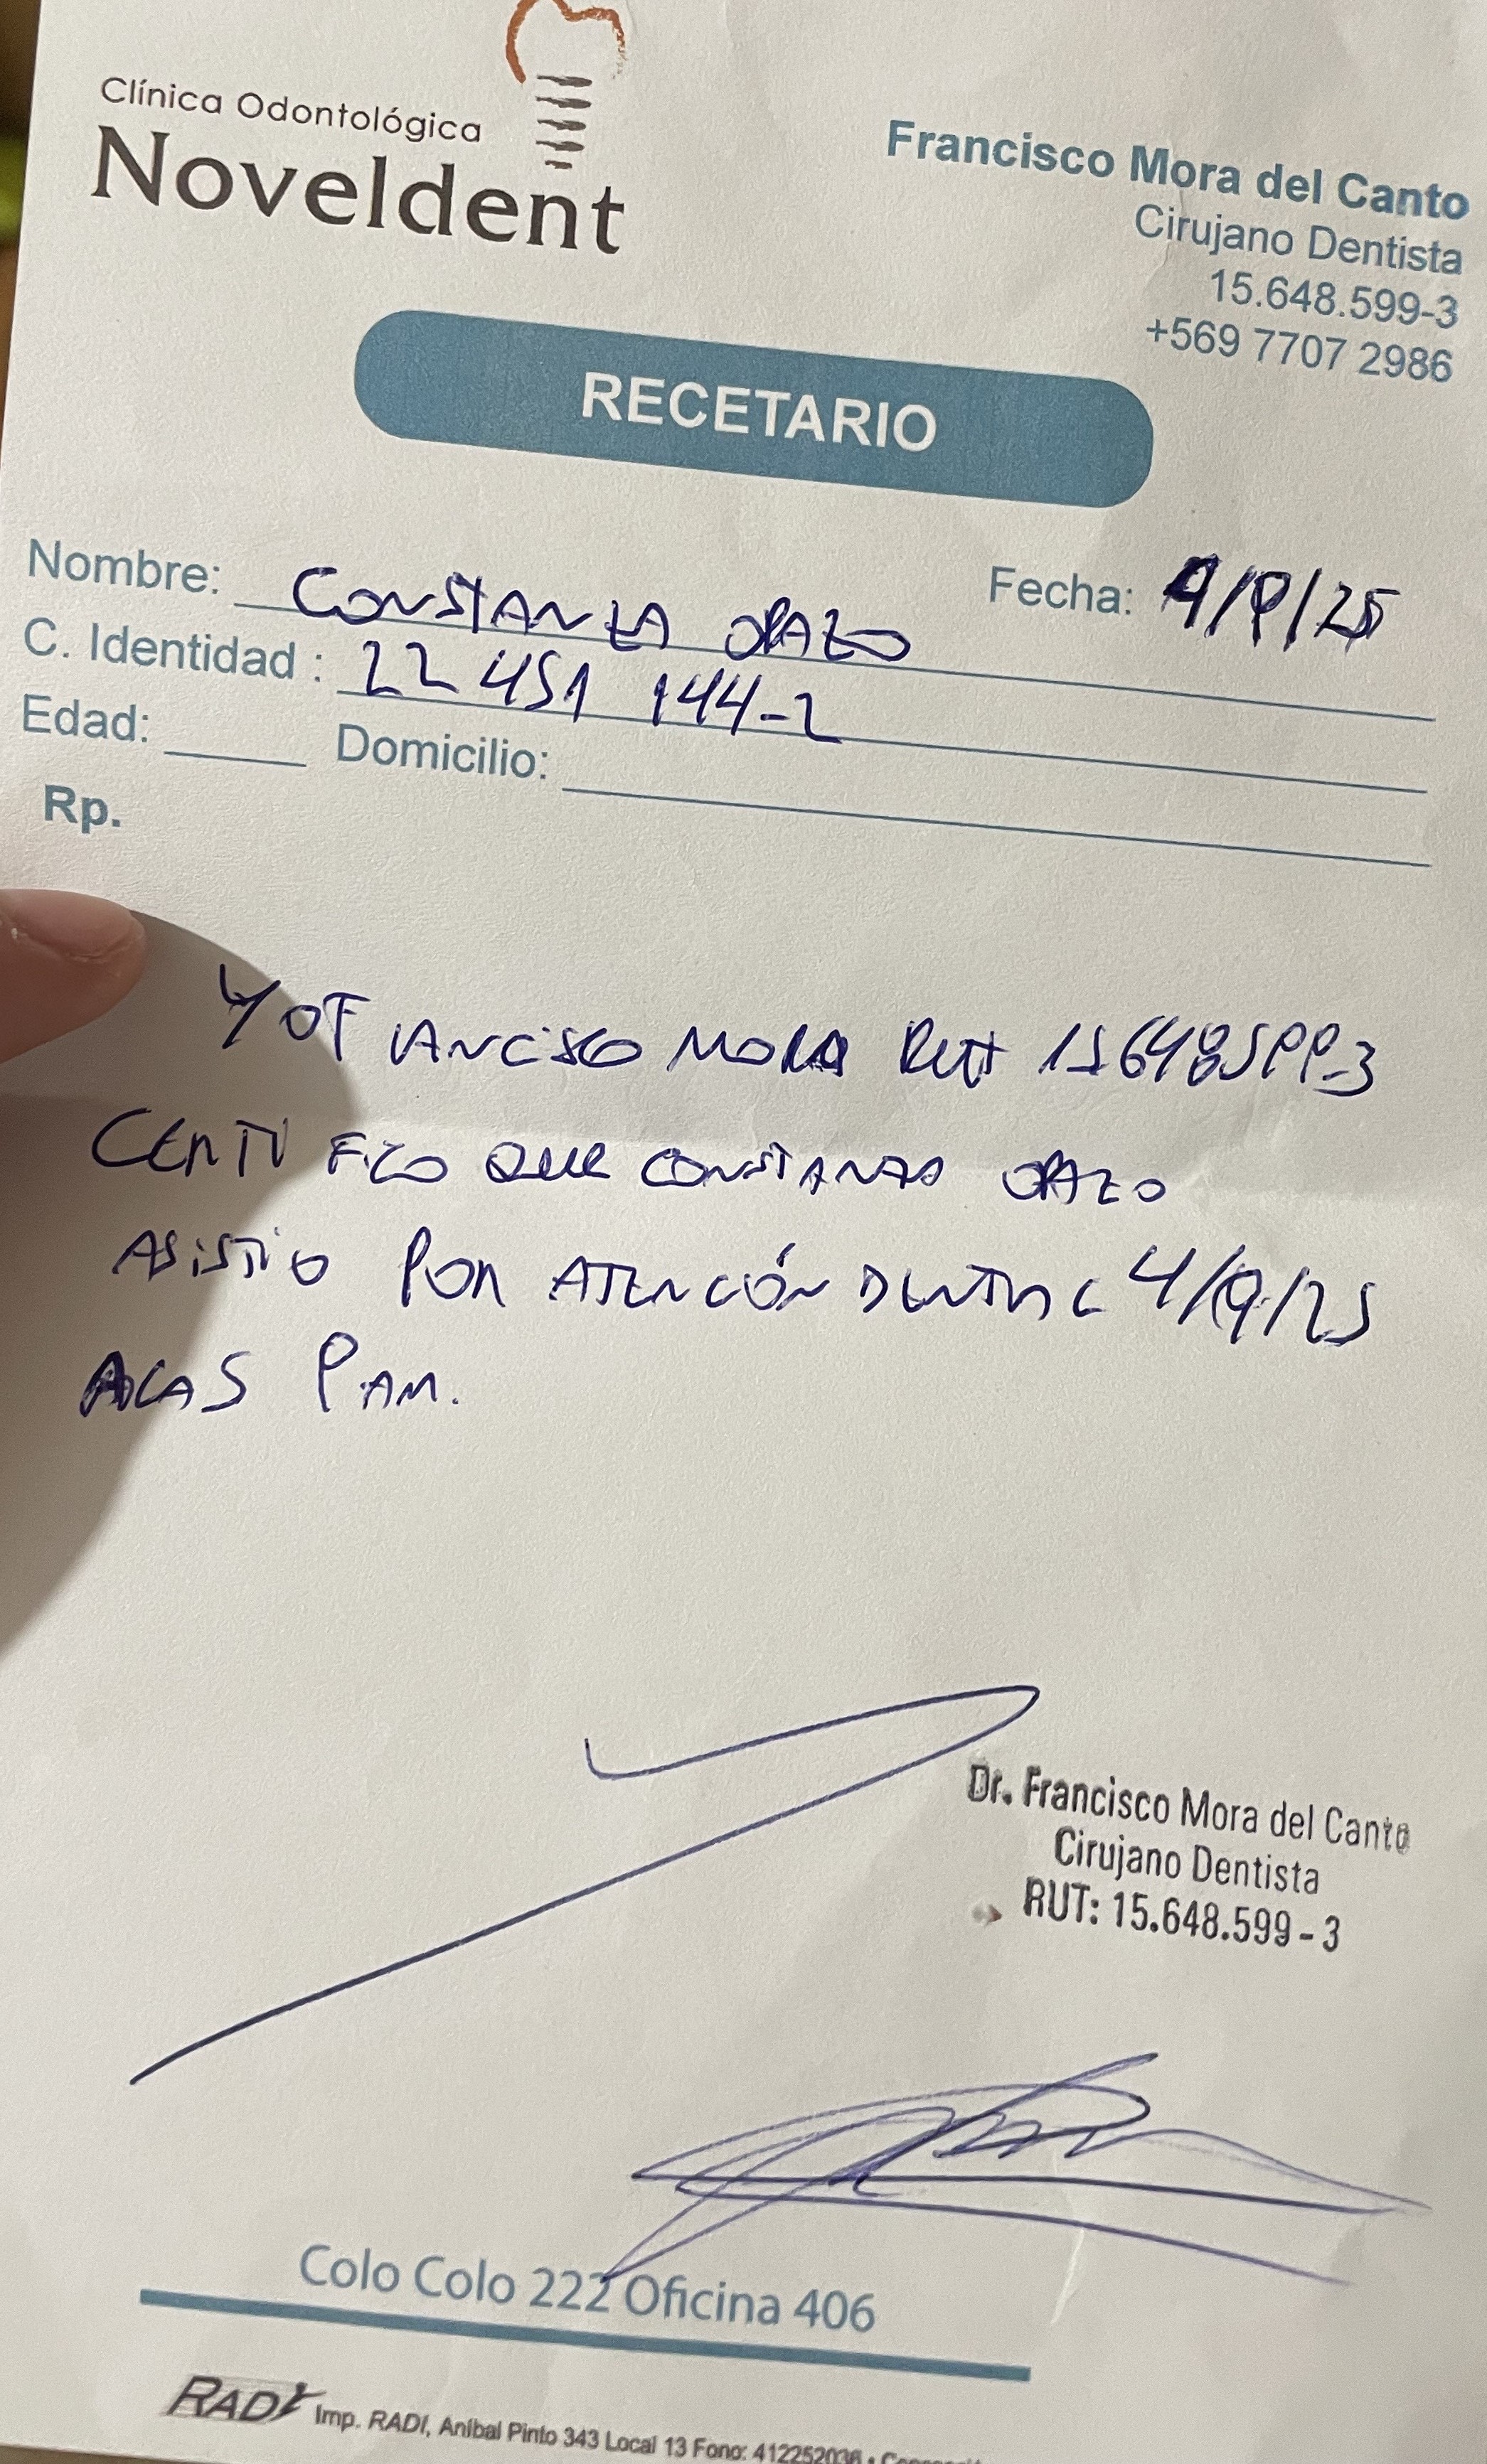 Clínica Odontológica
Noveldent
Francisco Mora del Canto
Cirujano Dentista
15.648.599-3
+569 7707 2986
RECETARIO
Nombre: CONSTANZA OPAZO Fecha: 4/9/25
C. Identidad : 22 451 144-2
Edad: Domicilio:
Rp.
YO FRANCISCO MORA RUT 15648599-3
CERTIFICO QUE CONSTANZA OPAZO
ASISTIO POR ATENCIÓN DENTAL 4/9/25
A LAS 9 AM.
Dr. Francisco Mora del Canto
Cirujano Dentista
RUT: 15.648.599-3
Colo Colo 222 Oficina 406
RADI Imp. RADI, Aníbal Pinto 343 Local 13 Fono: 412252036 •